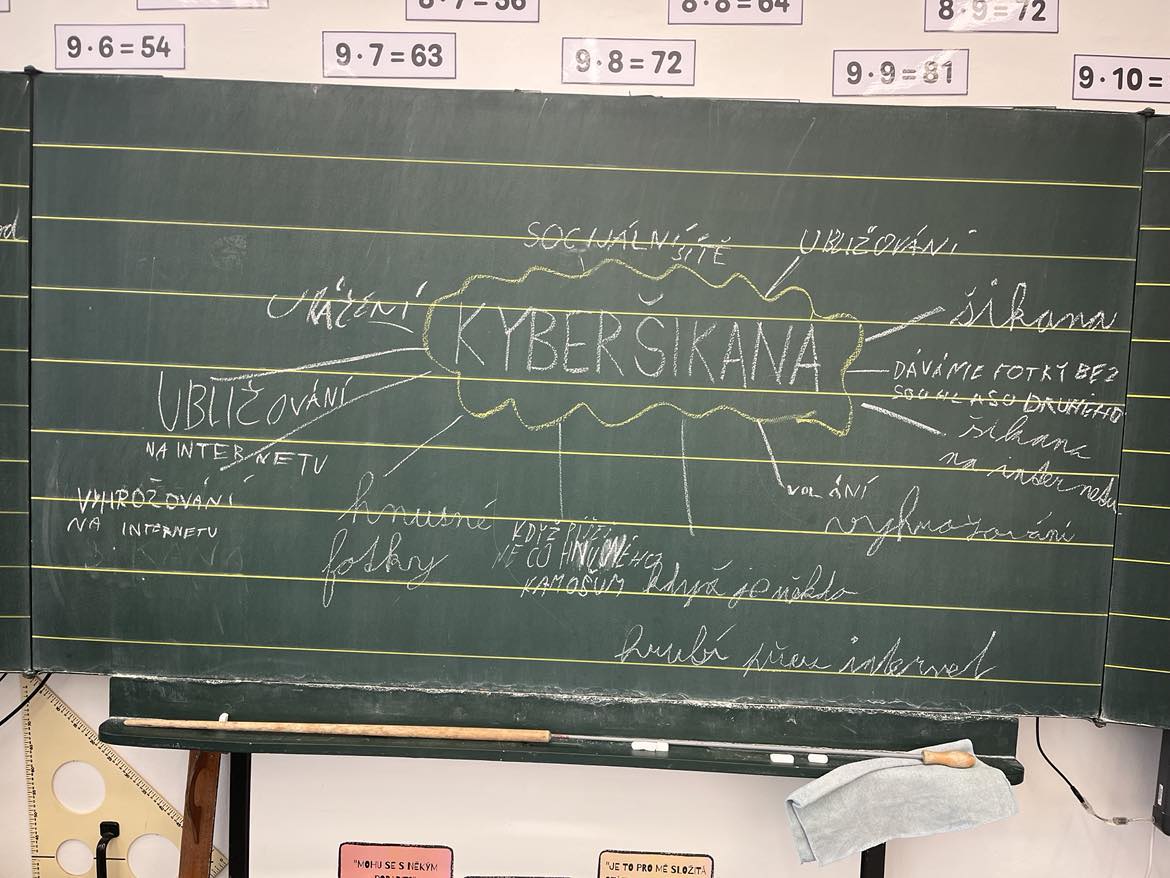 8·7=56
8·8=64
8·9=72
9·6=54
9·7=63
9·8=72
9·9=81
9·10=
SOCIJÁLNÍ
SÍTĚ
UBLIŽOVÁNÍ
URÁŽENÍ
KYBERŠIKANA
šikana
DÁVÁME FOTKY BEZ
SOUHLASU DRUHÉHO
UBLIŽOVÁNÍ
NA INTERNETU
šikana
na internetu
VYHROŽOVÁNÍ
NA INTERNETU
ŠIKANA
hnusné
fotky
KDYŽ PÍŠEŠ
NĚCO HNUSNÉHO
KAMOŠUM
VOLÁNÍ
vyhrožování
když je někdo
hrubí přes internet
"MOHU SE S NĚKÝM
"JE TO PRO MĚ SLOŽITÁ